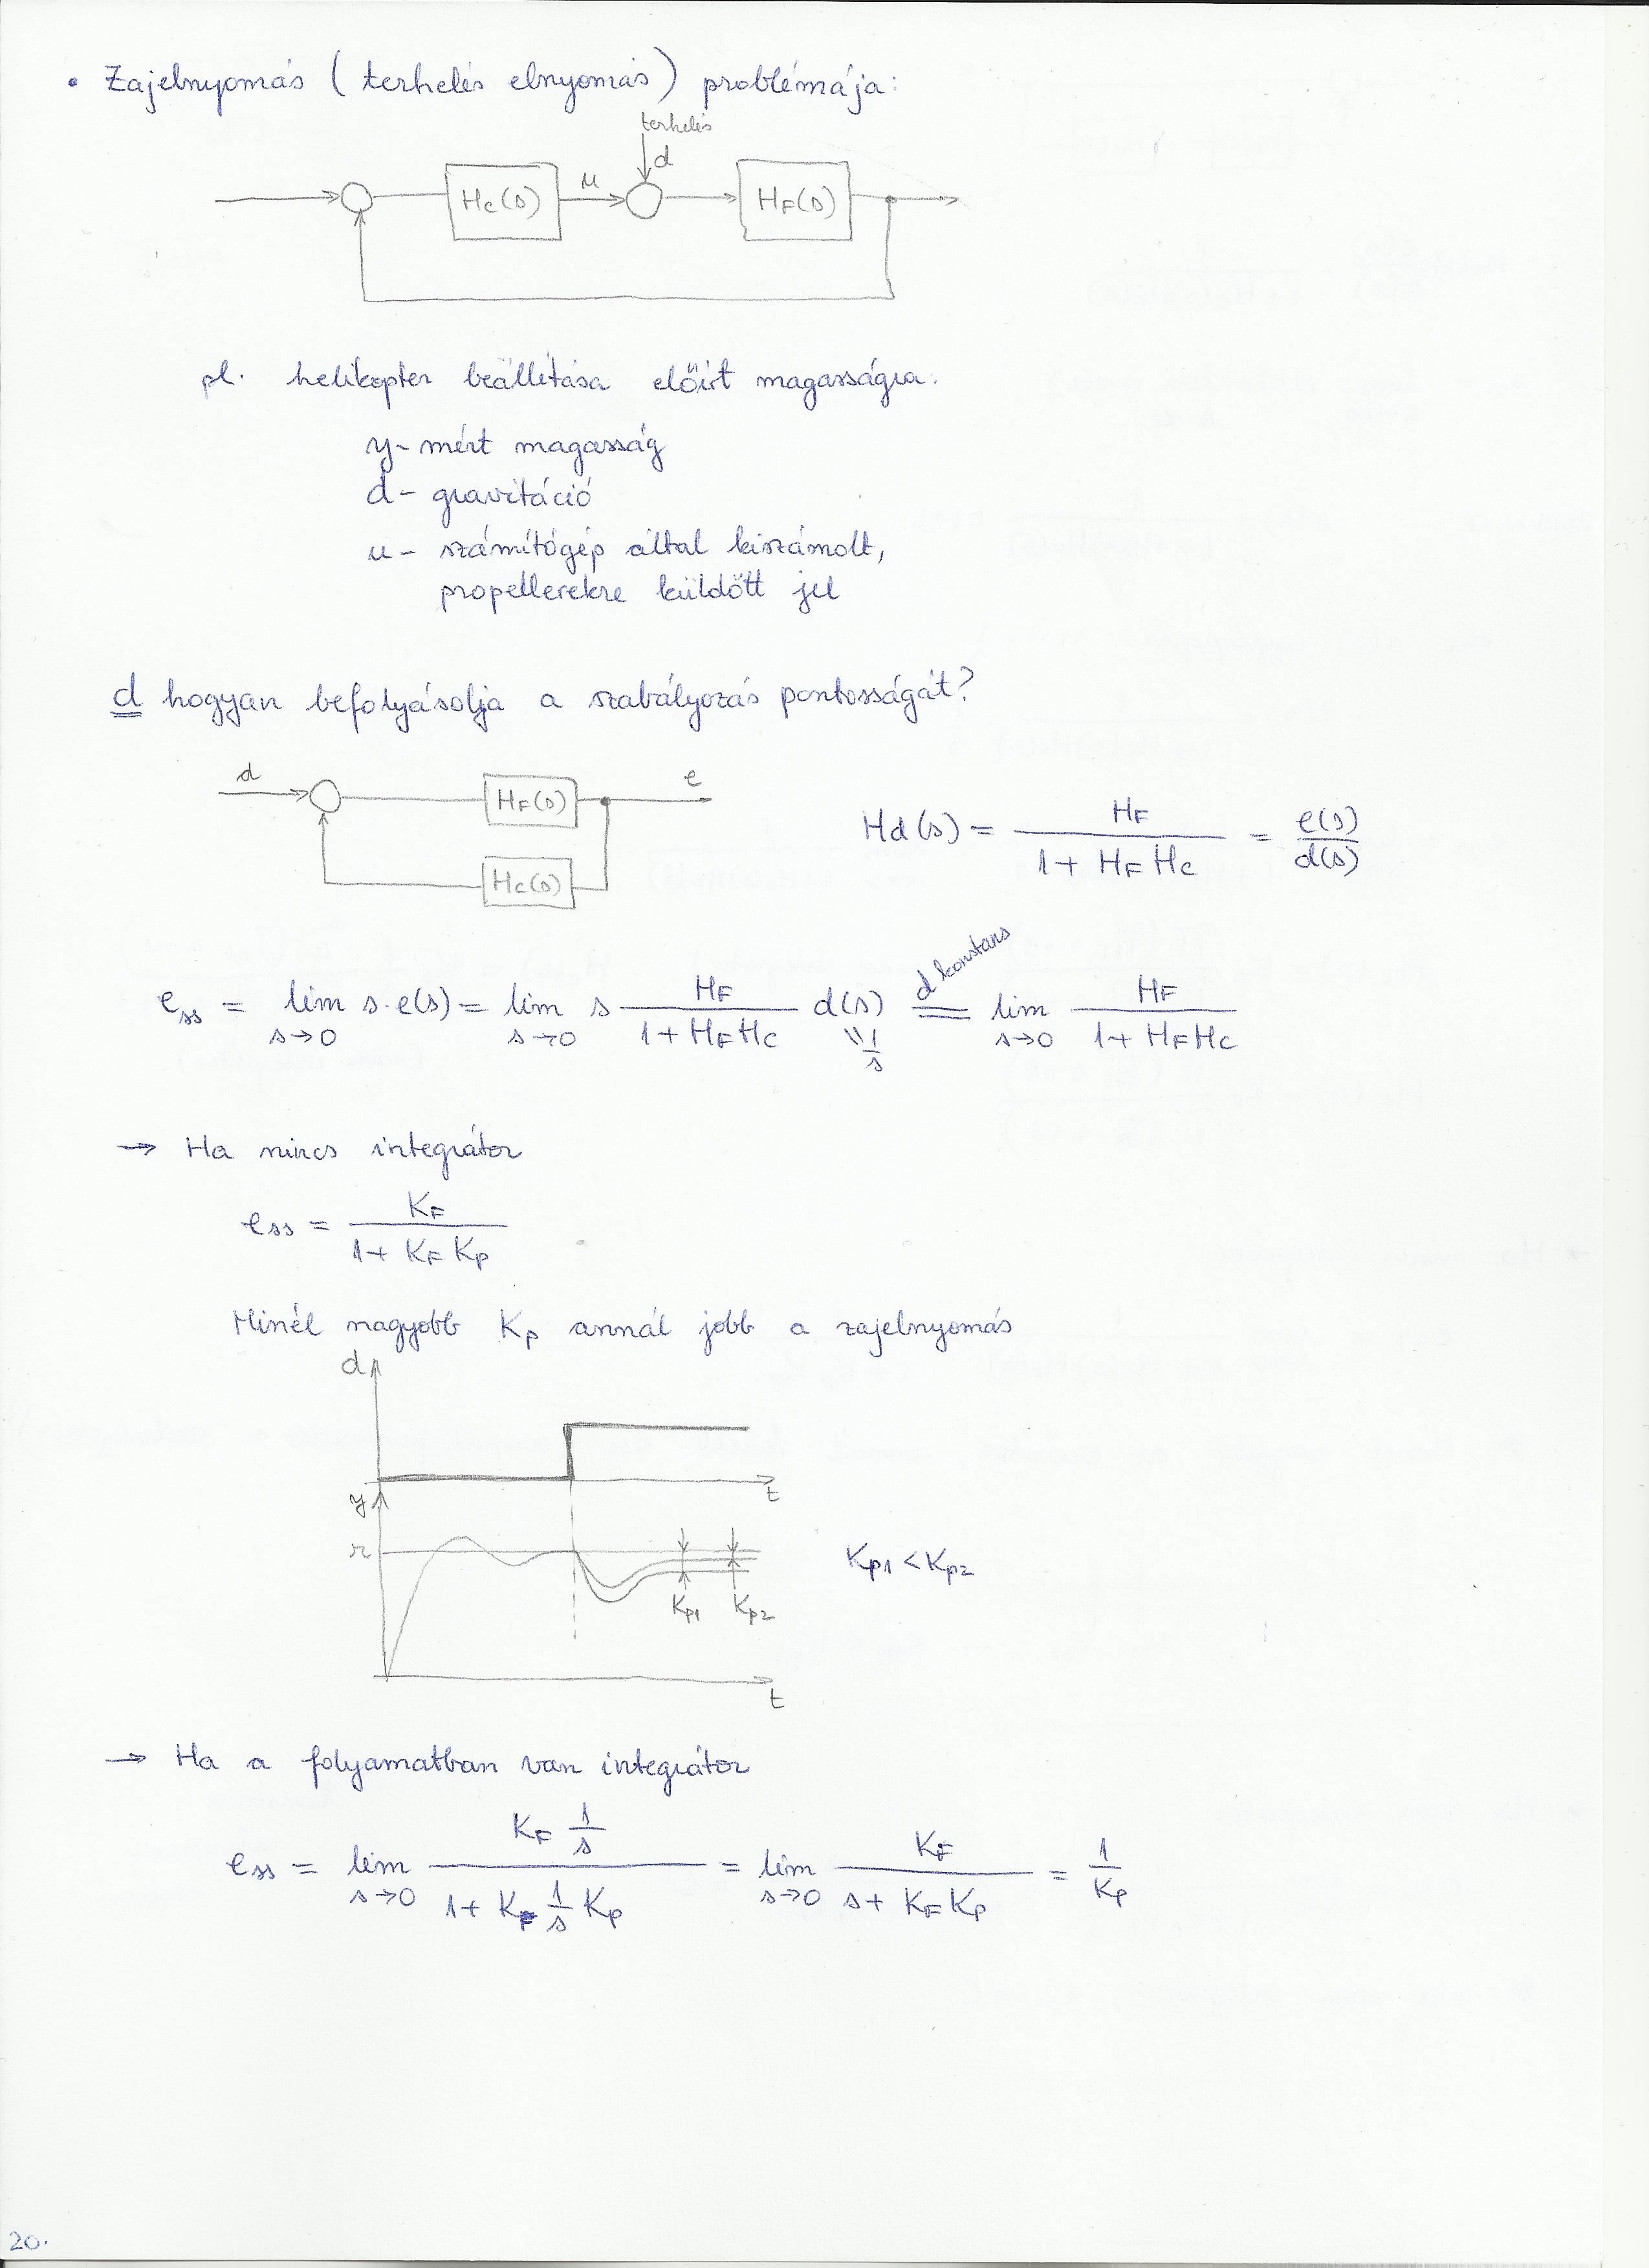 • Zajelnyomás (terhelés elnyomás) problémája:
terhelés
d
Hc(s) u HF(s)
pl. helikopter beállítása előírt magasságra.
y- mért magasság
d - gravitáció
u - számítógép által kiszámolt,
propellerekre küldött jel
d hogyan befolyásolja a szabályozás pontosságát?
d HF(s) e
Hc(s)
Hd(s) = HF / (1 + HF Hc) = e(s) / d(s)
ess = lim s→0 s·e(s) = lim s→0 s HF / (1 + HF Hc) d(s) = (d konstans) lim s→0 HF / (1 + HF Hc)
" 1/s
→ Ha nincs integrátor
ess = KF / (1 + KF Kp)
Minél nagyobb Kp annál jobb a zajelnyomás
d
t
y
r
Kp1 Kp2
Kp1 < Kp2
t
→ Ha a folyamatban van integrátor
ess = lim s→0 KF 1/s / (1 + KF 1/s Kp) = lim s→0 KF / (s + KF Kp) = 1 / Kp
20.